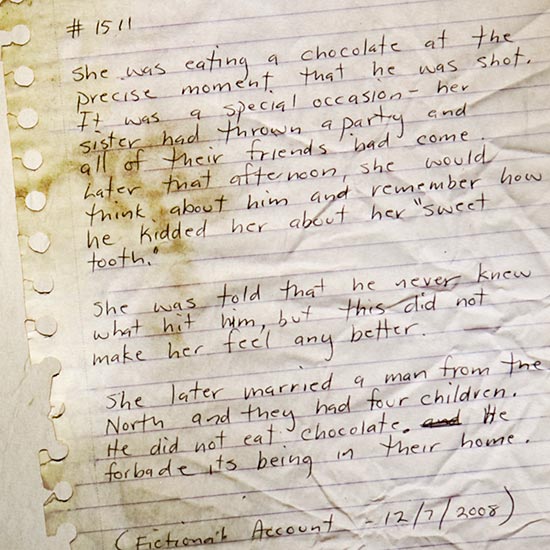 # 1511
She was eating a chocolate at the
precise moment that he was shot.
It was a special occasion - her
sister had thrown a party and
all of their friends had come.
Later that afternoon, she would
think about him and remember how
he kidded her about her "sweet
tooth."
She was told that he never knew
what hit him, but this did not
make her feel any better.
She later married a man from the
North and they had four children.
He did not eat chocolate. and He
forbade its being in their home.
(Fictional Account - 12/7/2008)